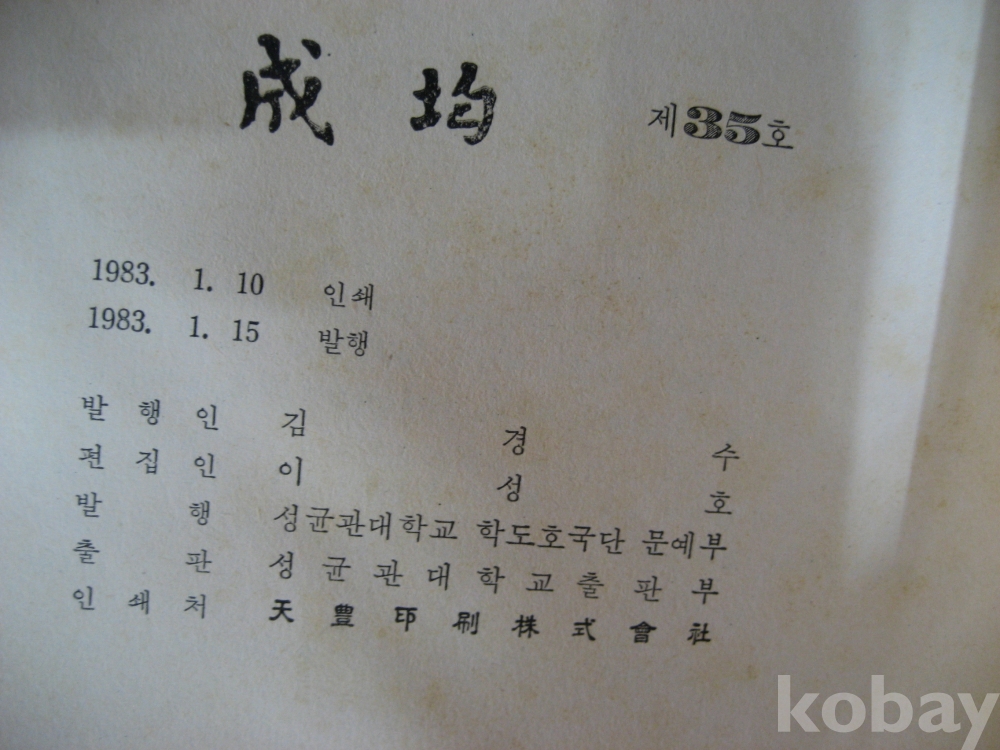 成均 제35호
1983. 1. 10 인쇄
1983. 1. 15 발행
발행인 김경수
편집인 이성호
발행 성균관대학교 학도호국단 문예부
출판 성균관대학교출판부
인쇄처 天豊印刷株式會社
kobay